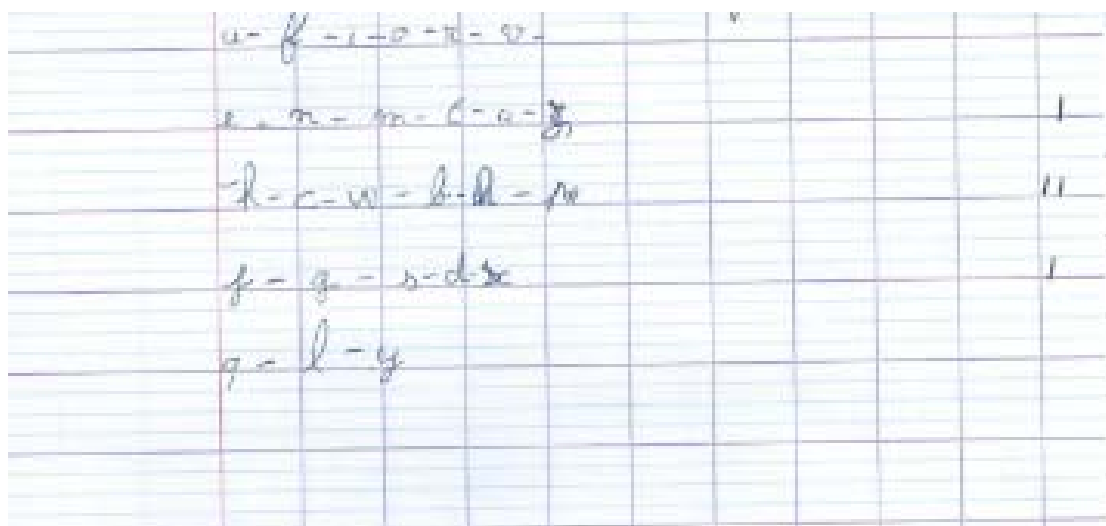 u - f - i - o - r - v -
e - n - m - t - a - z
k - c - w - b - h - p
f - g - s - d - x
q - l - y